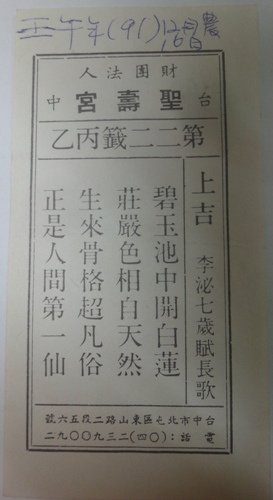 壬午年(91)農
財團法人
台 聖壽宮 中
第二二籤丙乙
上吉 李泌七歲賦長歌
碧玉池中開白蓮
莊嚴色相自天然
生來骨格超凡俗
正是人間第一仙
台中市北屯區東山路二段五六號
電話:(〇四)二三九〇〇九二